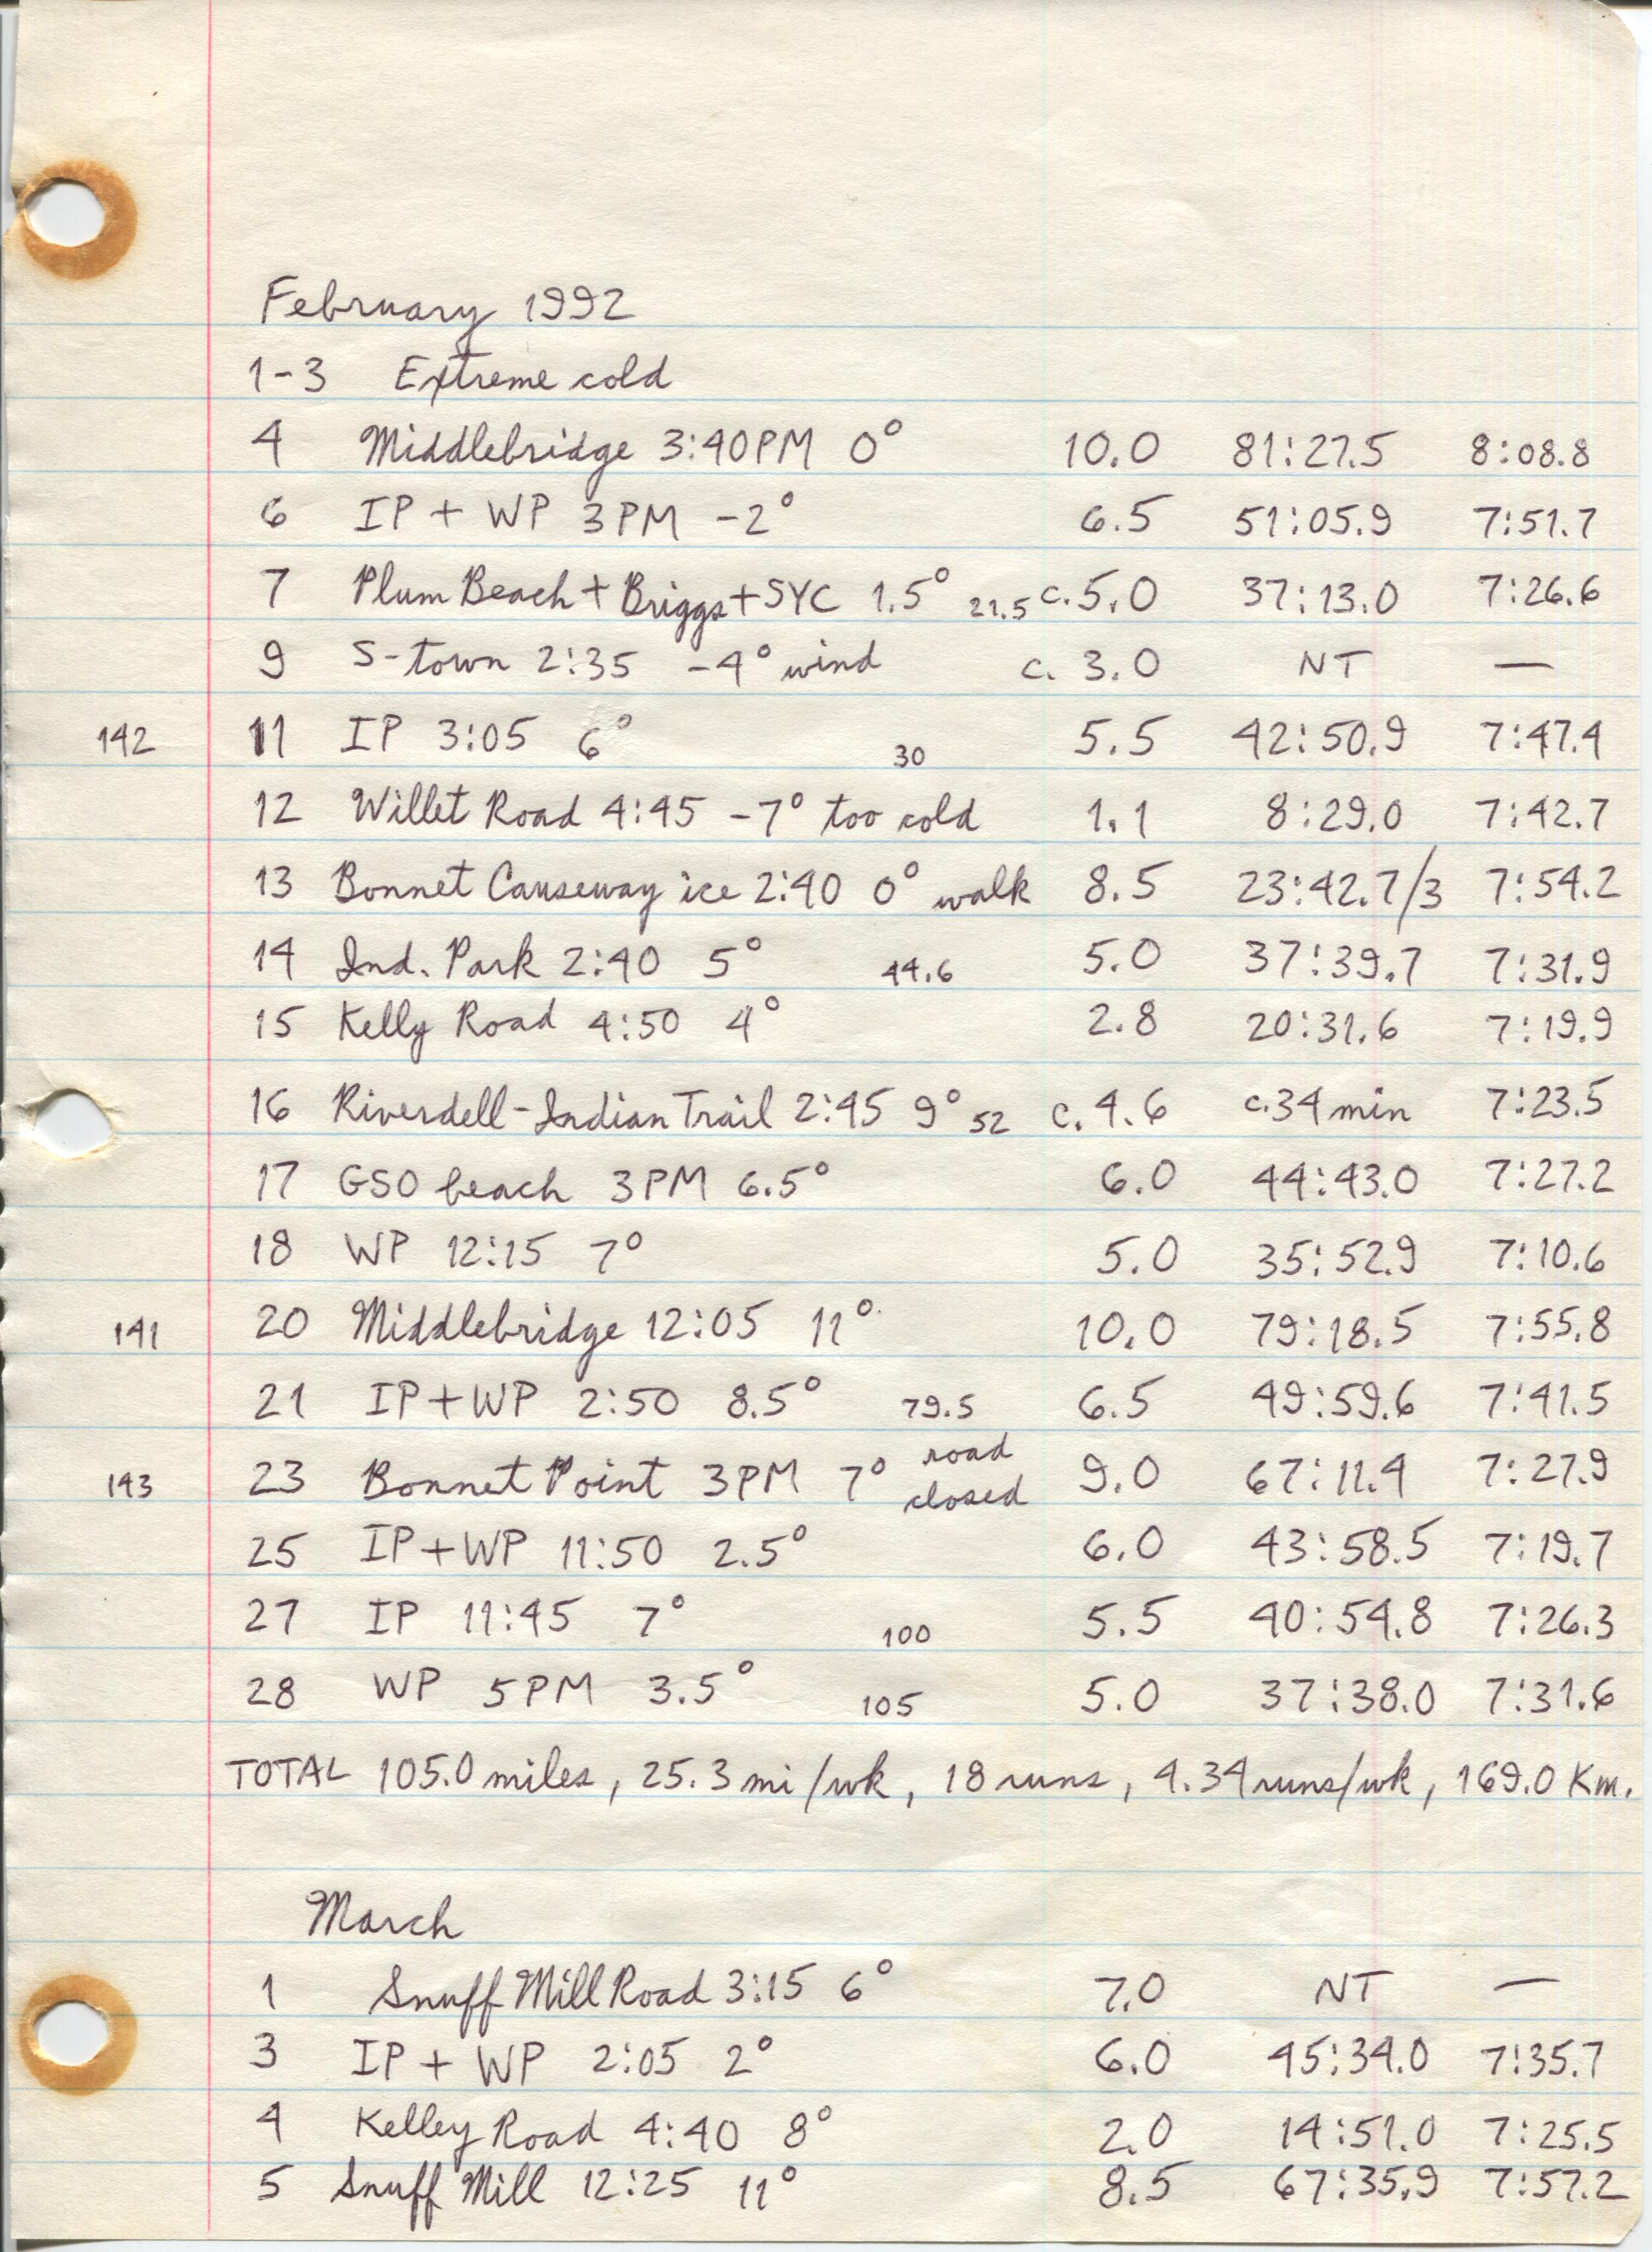 February 1992
1-3 Extreme cold
4 Middlebridge 3:40PM 0° 10.0 81:27.5 8:08.8
6 IP + WP 3PM -2° 6.5 51:05.9 7:51.7
7 Plum Beach + Briggs + SYC 1.5° 21.5 c. 5.0 37:13.0 7:26.6
9 S-town 2:35 -4° wind c. 3.0 NT —
142 11 IP 3:05 6° 30 5.5 42:50.9 7:47.4
12 Willet Road 4:45 -7° too cold 1.1 8:29.0 7:42.7
13 Bonnet Causeway ice 2:40 0° walk 8.5 23:42.7/3 7:54.2
14 Ind. Park 2:40 5° 44.6 5.0 37:39.7 7:31.9
15 Kelly Road 4:50 4° 2.8 20:31.6 7:19.9
16 Riverdell-Indian Trail 2:45 9° 52 c. 4.6 c.34 min 7:23.5
17 GSO beach 3PM 6.5° 6.0 44:43.0 7:27.2
18 WP 12:15 7° 5.0 35:52.9 7:10.6
141 20 Middlebridge 12:05 11° 10.0 79:18.5 7:55.8
21 IP+WP 2:50 8.5° 79.5 6.5 49:59.6 7:41.5
143 23 Bonnet Point 3PM 7° road closed 9.0 67:11.4 7:27.9
25 IP+WP 11:50 2.5° 6.0 43:58.5 7:19.7
27 IP 11:45 7° 100 5.5 40:54.8 7:26.3
28 WP 5PM 3.5° 105 5.0 37:38.0 7:31.6
TOTAL 105.0 miles, 25.3 mi/wk, 18 runs, 4.34 runs/wk, 169.0 Km.
March
1 Snuff Mill Road 3:15 6° 7.0 NT —
3 IP + WP 2:05 2° 6.0 45:34.0 7:35.7
4 Kelley Road 4:40 8° 2.0 14:51.0 7:25.5
5 Snuff Mill 12:25 11° 8.5 67:35.9 7:57.2